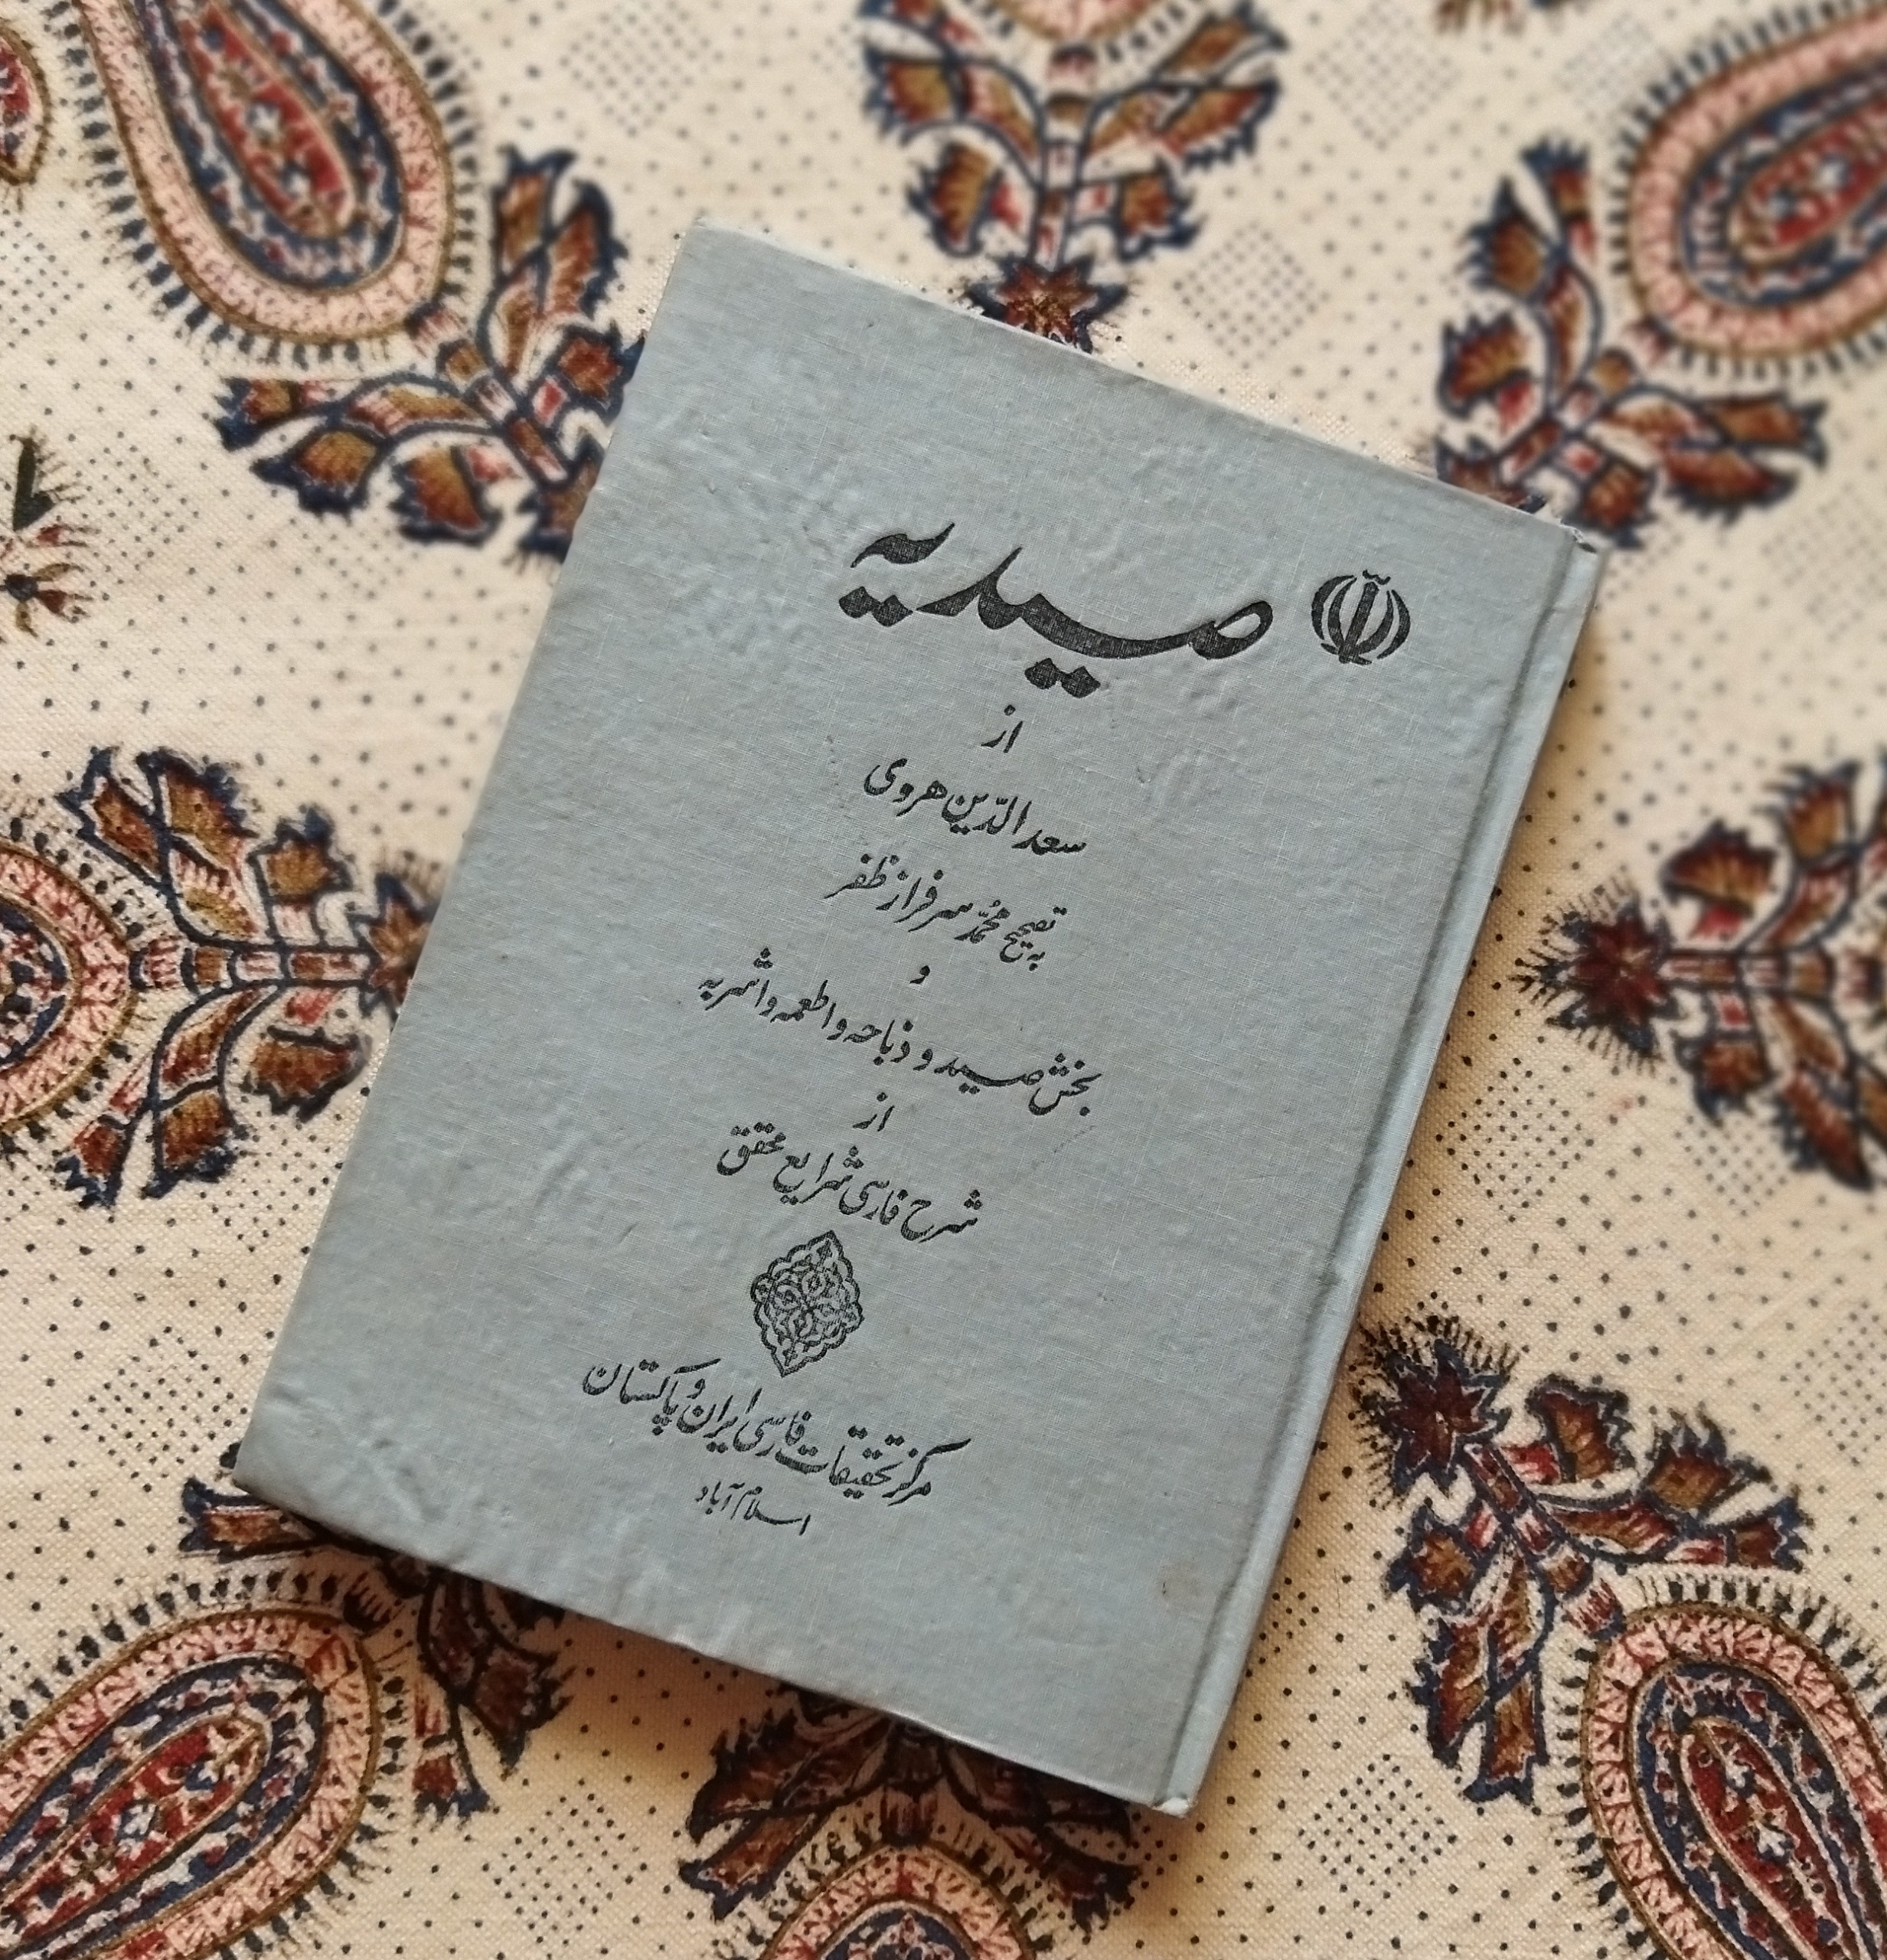 صیدیه
از
سعدالدّین هروی
به تصحیح محمّد سرفراز ظفر
و
بخش صید و ذباحه و اطعمه و اشربه
از
شرح فارسی شرایع محقق
مرکز تحقیقات فارسی ایران و پاکستان
اسلام آباد